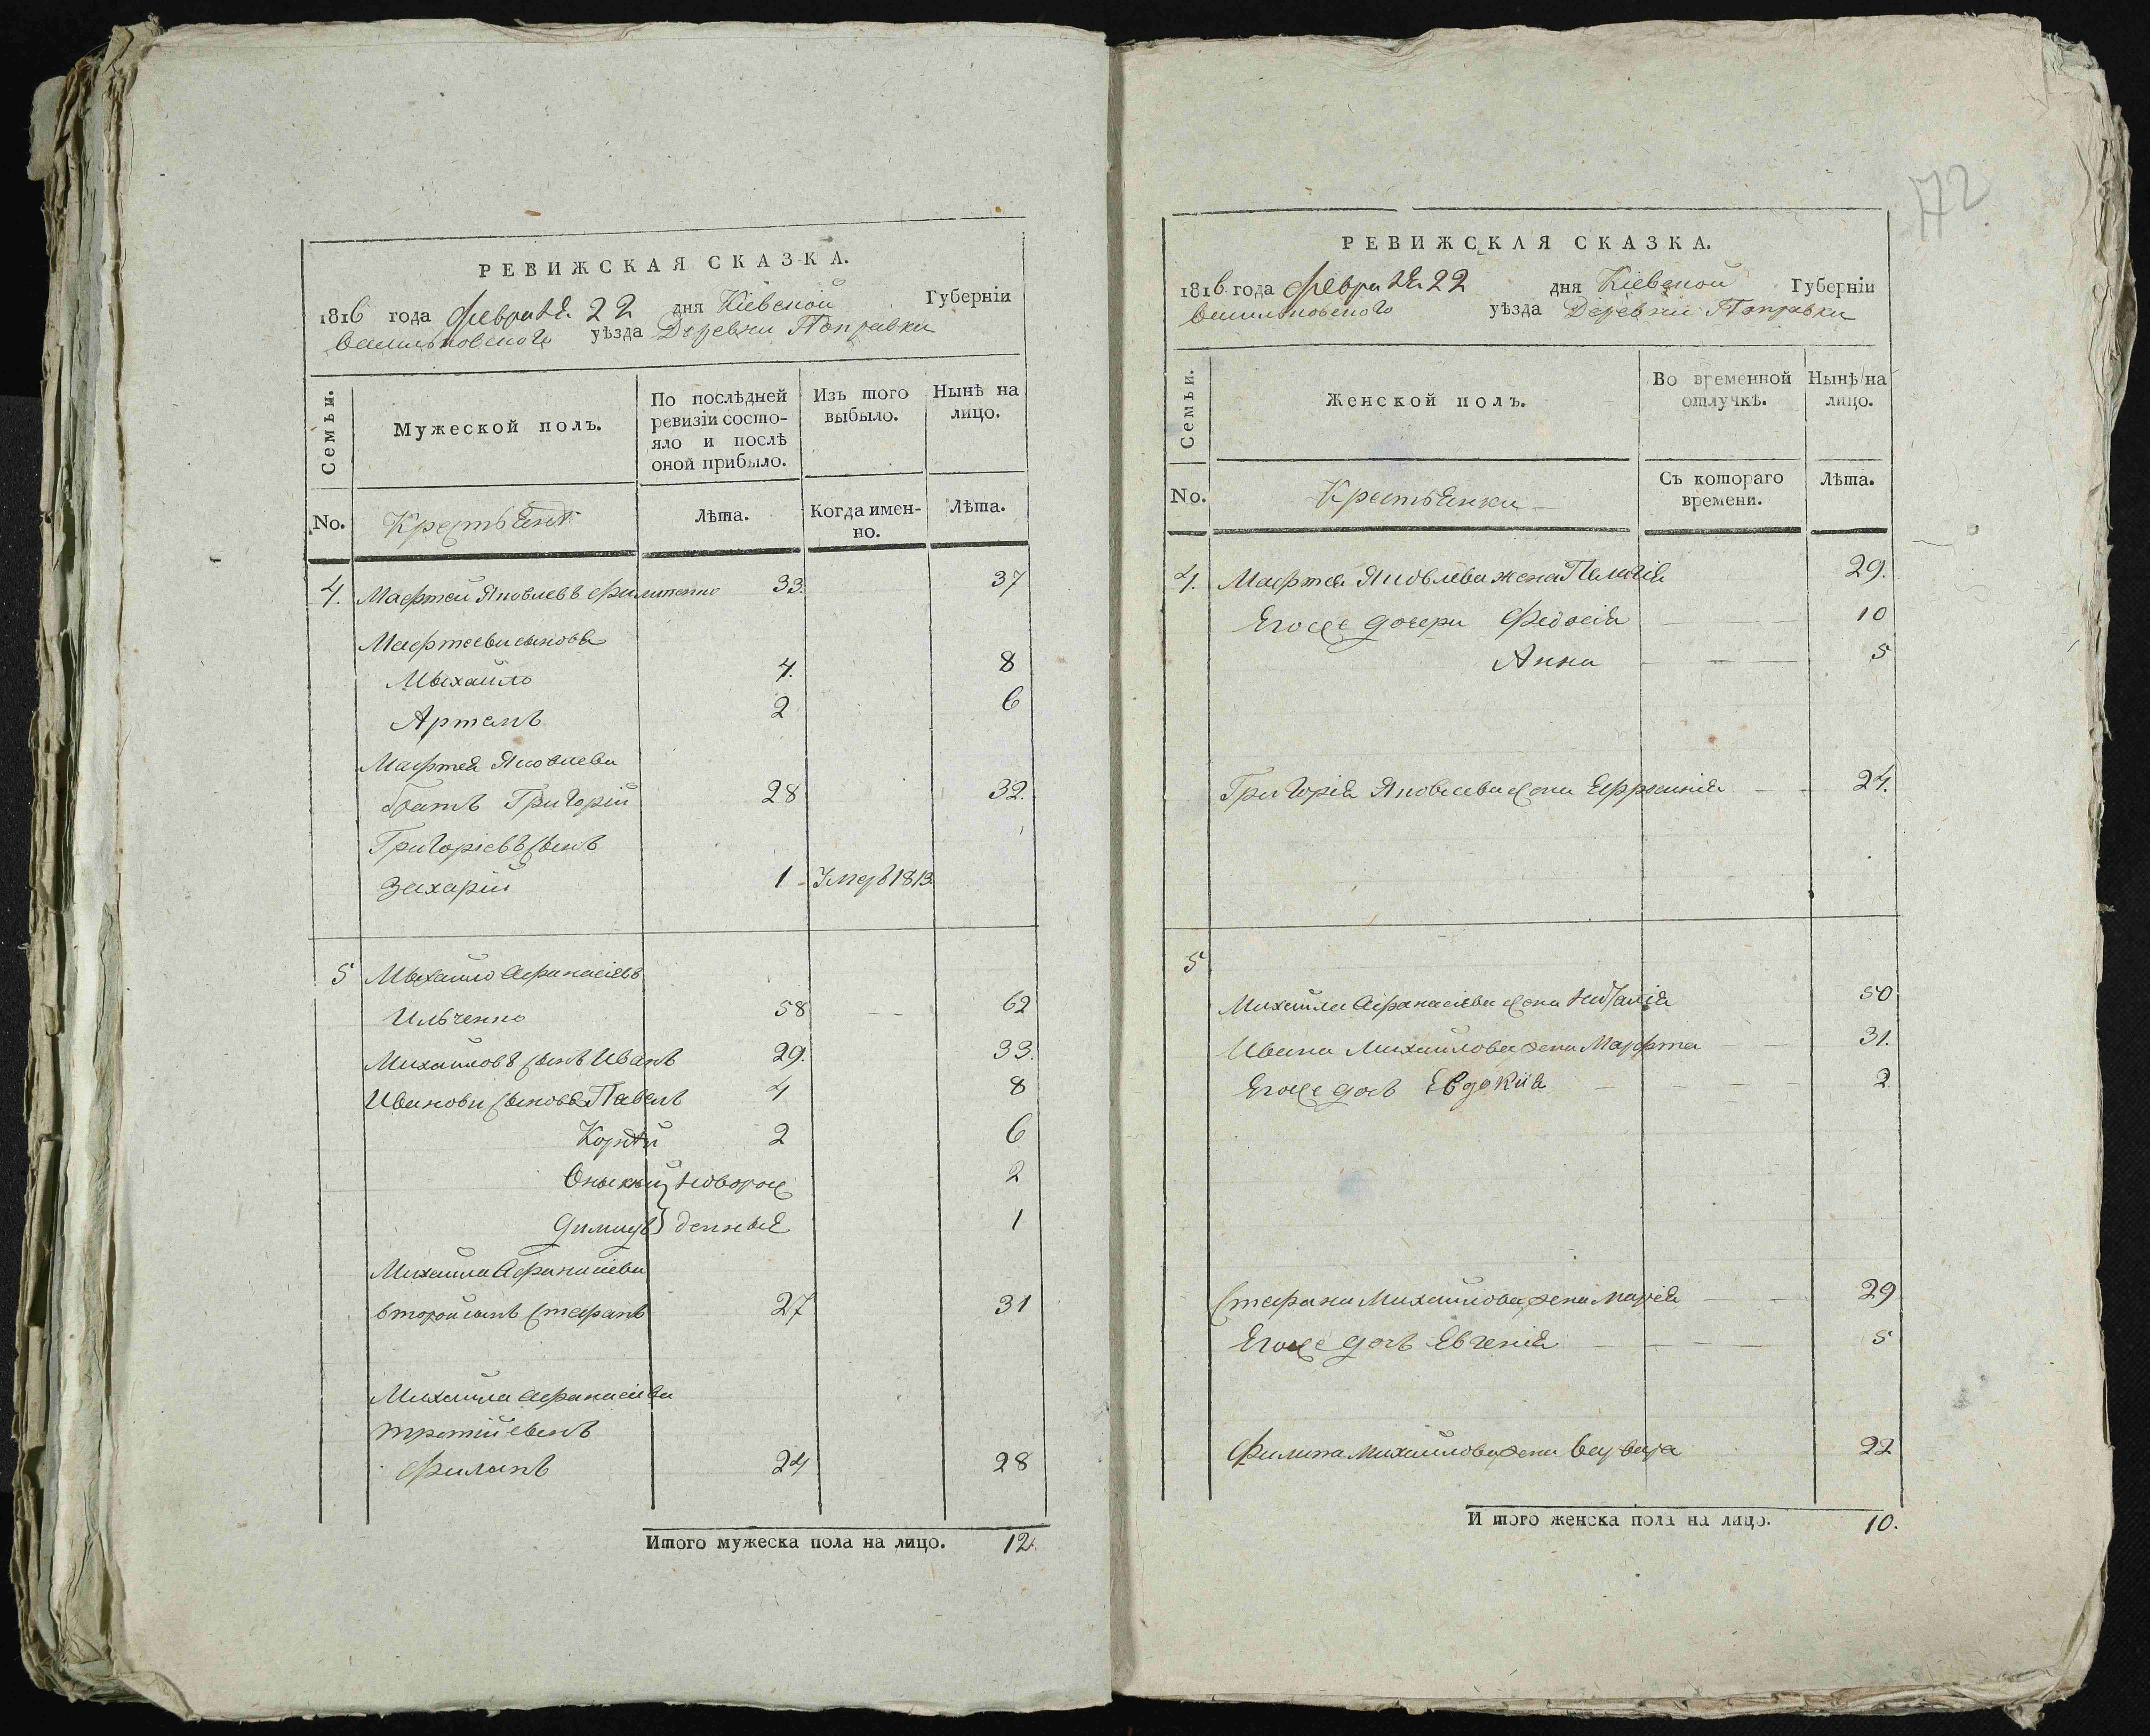 РЕВИЖСКАЯ СКАЗКА.
1816 года февраля 22 дня Кіевской Губерніи
Васильковского уѣзда Деревни Поправки
Семьи.
Мужеской полъ.
По послѣдней ревизіи состояло и послѣ оной прибыло.
Изъ того выбыло.
Нынѣ на лицо.
No.
Крестьянъ
Лѣта.
Когда именно.
Лѣта.
4. Мафтей Яковлевъ Филипенко 33. 37
Мафтеевы сыновя
Мыхайло 4. 8
Артемъ 2 6
Мафтея Яковлева
братъ Григорій 28 32.
Григоріевъ сынъ
Захарій 1 Умеръ 1813
5 Мыхайло Афанасіевъ
Ильченко 58 62
Михайловъ сынъ Иванъ 29. 33.
Ивановы сыновя Павелъ 4 8
Корнѣй 2 6
новорож 2
денные 1
Михайла Афанасіева
второй сынъ Стефанъ 27 31
Михайла Афанасіева
третій сынъ
Филипъ 24 28
Итого мужеска пола на лицо. 12.
172
РЕВИЖСКАЯ СКАЗКА.
1816 года февраля 22 дня Кіевской Губерніи
Васильковского уѣзда Деревни Поправки
Семьи.
Женской полъ.
Во временной отлучкѣ.
Нынѣ на лицо.
No.
Крестьянки
Съ котораго времени.
Лѣта.
4. Мафтея Яковлева жена Пелагія 29.
Егоже дочери Феодосія 10
Анна 5
Григорія Яковлева жена Ефросинія 24.
5
Михайла Афанасіева жена Наталія 50
Ивана Михайлова жена Марфта 31.
Егоже дочь Евдокія 2
Стефана Михайлова жена Марія 29
Егоже дочь Евгенія 5
Филипа Михайлова жена Варвара 22
Итого женска пола на лицо. 10.